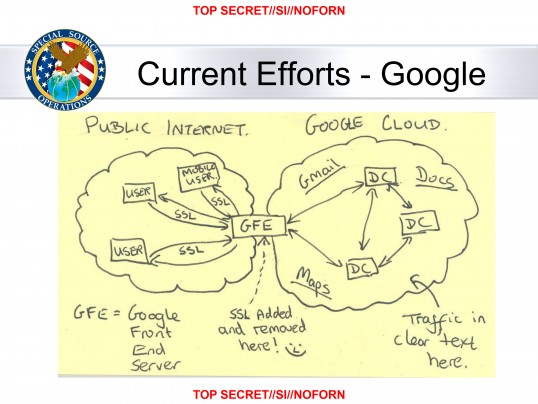 TOP SECRET//SI//NOFORN
SPECIAL SOURCE
OPERATIONS
Current Efforts - Google
PUBLIC INTERNET.
GOOGLE CLOUD.
MOBILE
USER.
USER
SSL
SSL
USER
SSL
GFE
Gmail
DC
Docs
DC
DC
Maps
GFE = Google
Front
End
Server
SSL Added
and removed
here!
Traffic in
clear text
here.
TOP SECRET//SI//NOFORN